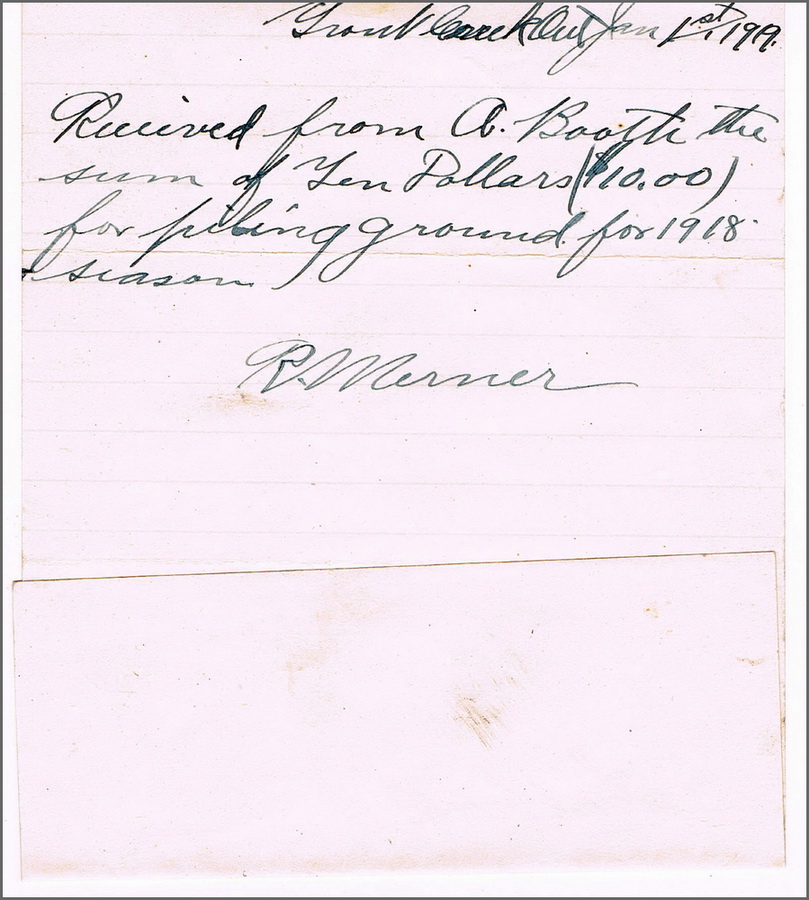 Trout Creek Ont Jan 1st. 1919.
Received from A. Booth the
sum of Ten Dollars ($10.00)
for piling ground for 1918
season
R. Merner